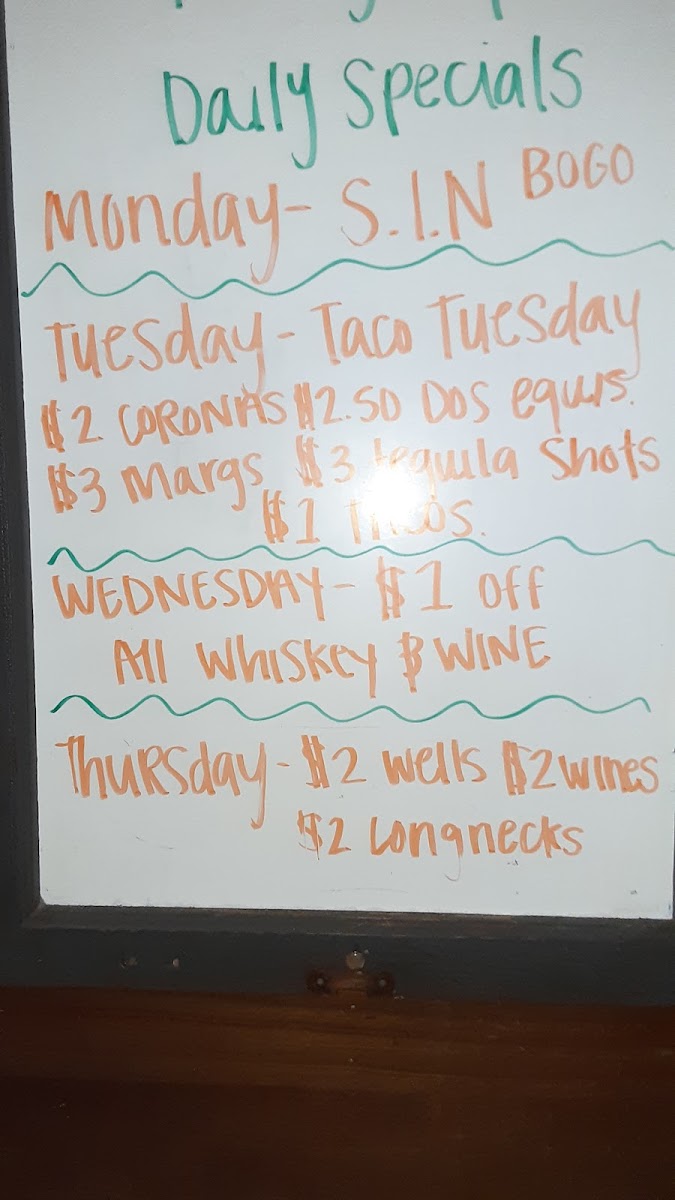 Daily Specials
Monday- S.I.N BOGO
Tuesday - Taco Tuesday
$2 CORONAS $2.50 Dos equis.
$3 Margs $3 tequila Shots
$1 Tacos.
WEDNESDAY- $1 off
All Whiskey & WINE
Thursday - $2 wells $2 wines
$2 Longnecks